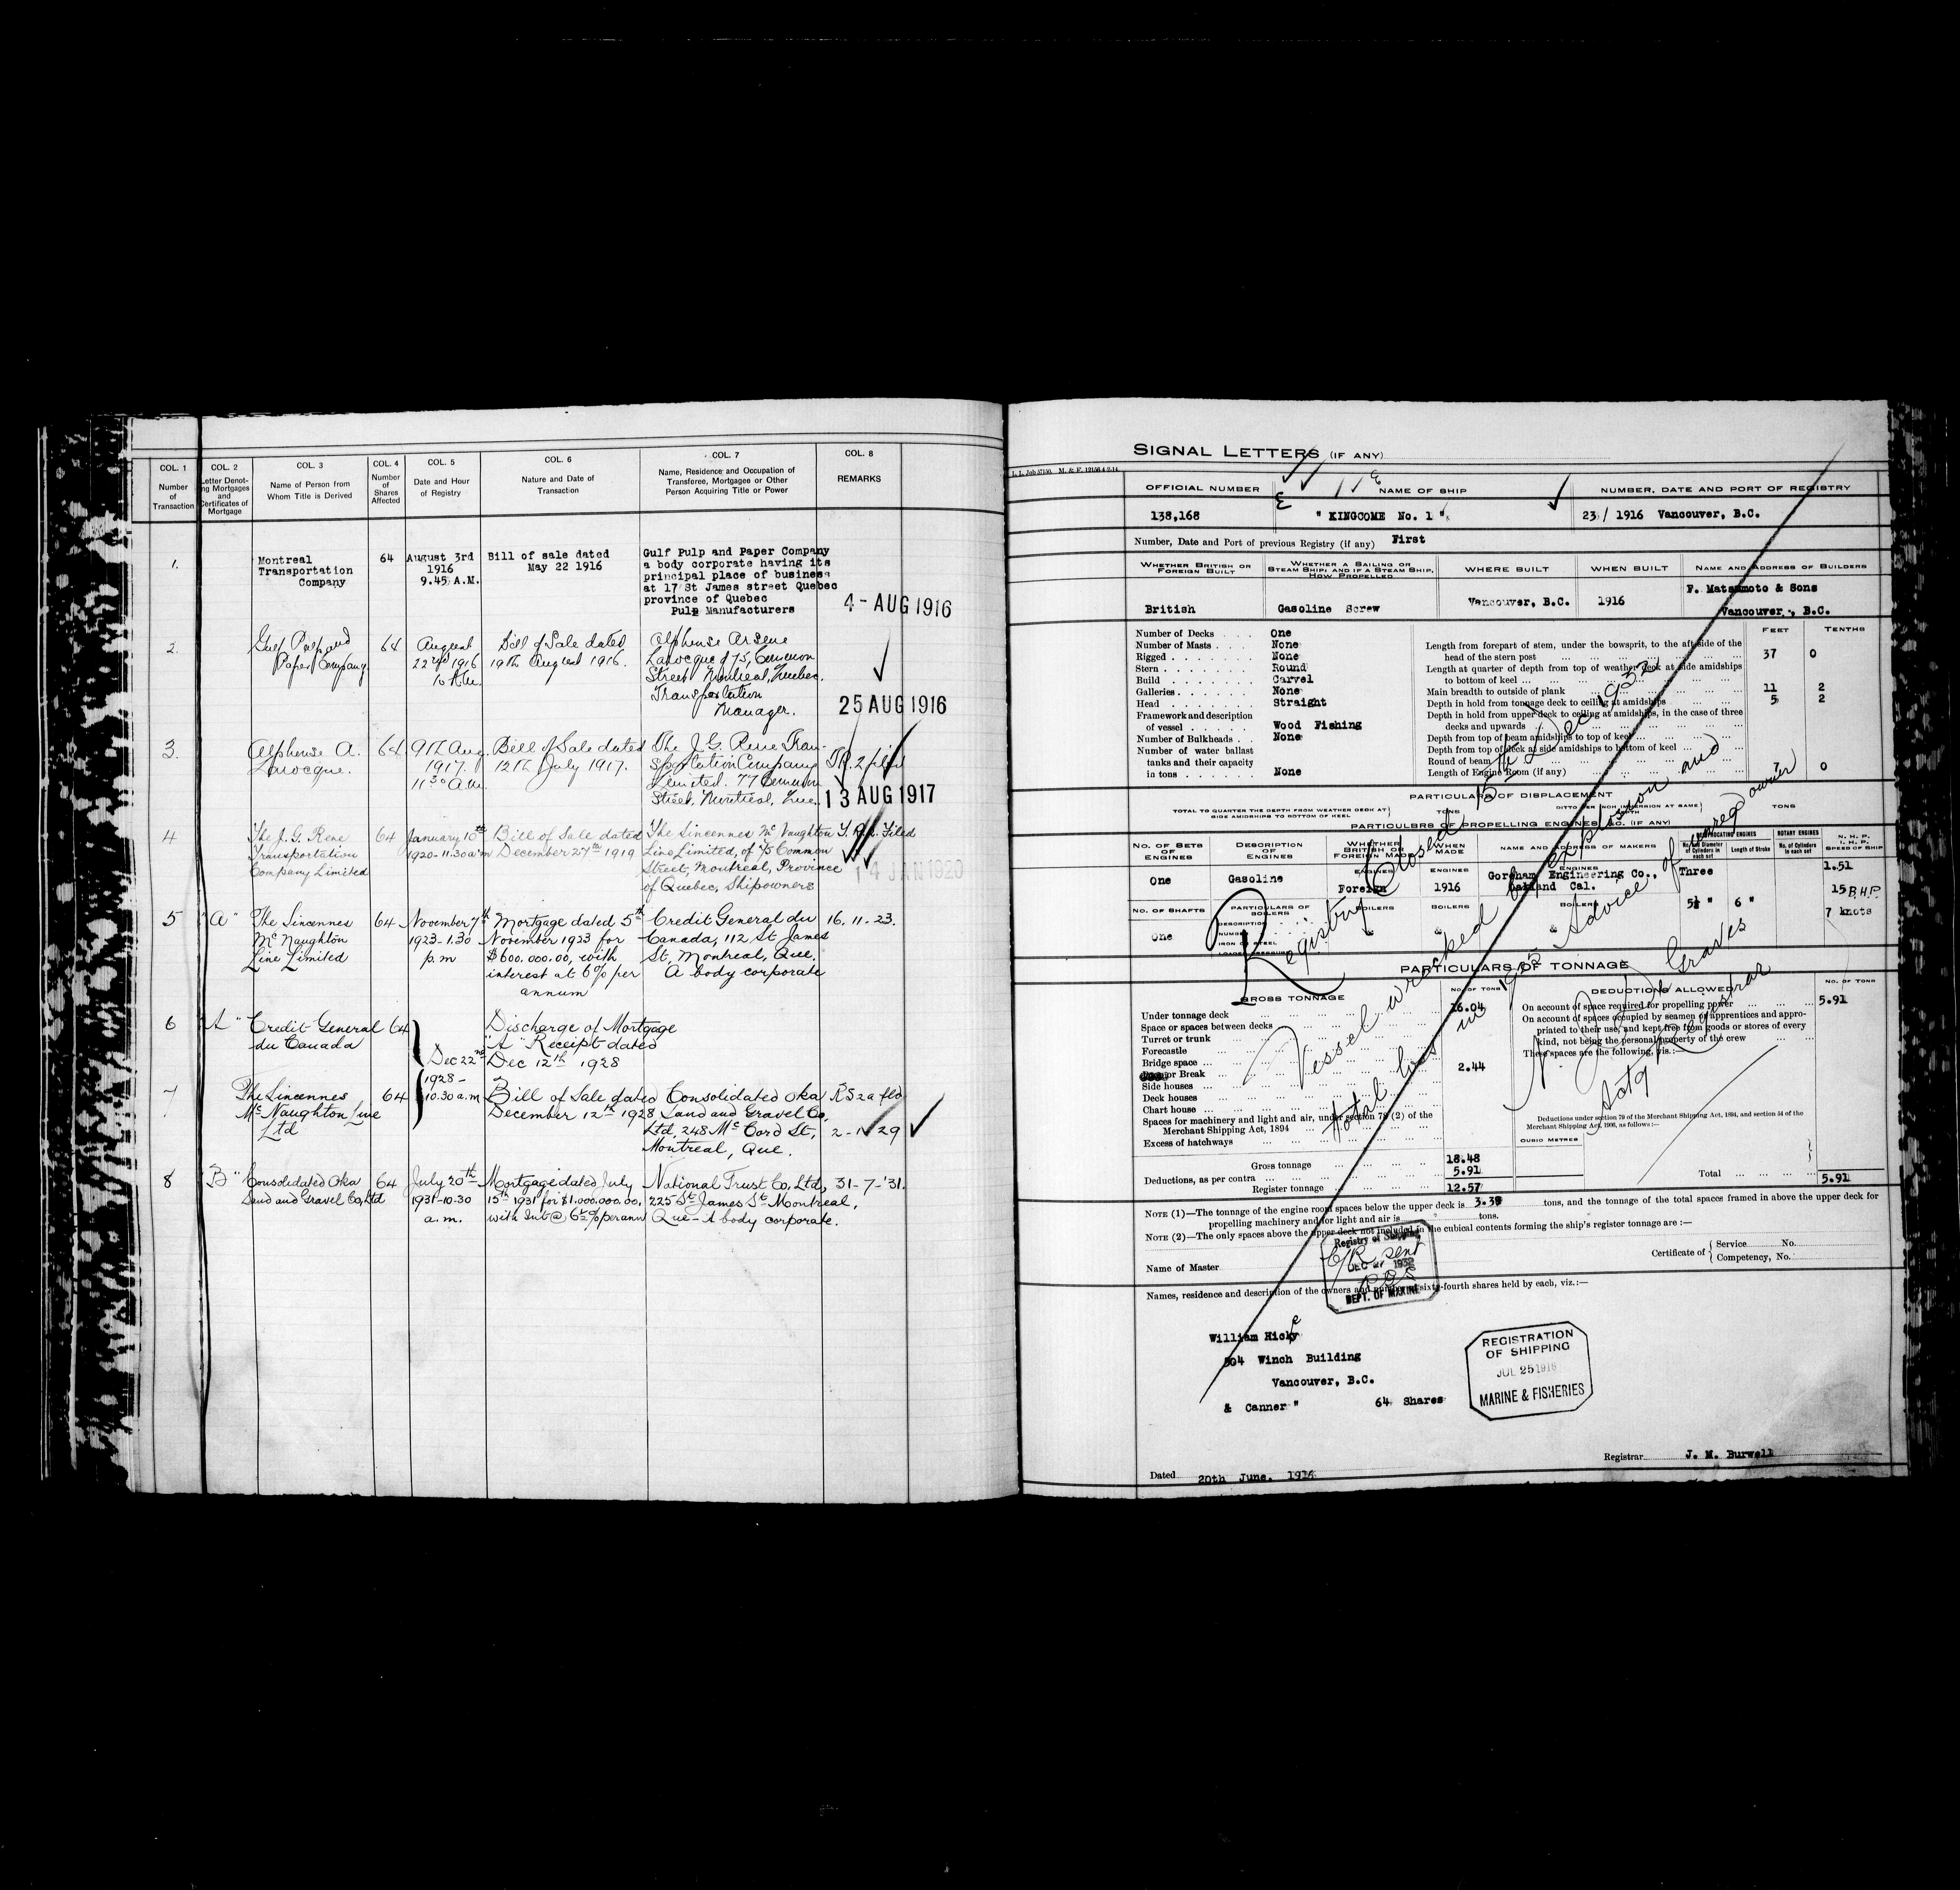 COL. 1 Number of Transaction
COL. 2 Letter Denoting Mortgages and Certificates of Mortgage
COL. 3 Name of Person from Whom Title is Derived
COL. 4 Number of Shares Affected
COL. 5 Date and Hour of Registry
COL. 6 Nature and Date of Transaction
COL. 7 Name, Residence and Occupation of Transferee, Mortgagee or Other Person Acquiring Title or Power
COL. 8 REMARKS
1.
Montreal
Transportation
Company
64
August 3rd
1916
9.45 A.M.
Bill of sale dated
May 22 1916
Gulf Pulp and Paper Company
a body corporate having its
principal place of business
at 17 St James street Quebec
province of Quebec
Pulp Manufacturers
4 - AUG 1916
2.
Gulf Pulp and
Paper Company
64
August
22nd 1916
10 A.M.
Bill of Sale dated
19th August 1916.
Alphonse Arsene
Larocque of 75, Common
Street Montreal, Quebec.
Transportation
Manager.
25 AUG 1916
3.
Alphonse A.
Larocque.
64
9th Aug.
1917.
11.30 A.M.
Bill of Sale dated
12th July 1917.
The J. G. Rene Tran-
sportation Company
Limited. 77 Common
Street, Montreal, Que.
13 AUG 1917
4
The J. G. Rene
Transportation
Company Limited
64
January 10th
1920-11.30 a.m
Bill of Sale dated
December 27th 1919
The Sincennes McNaughton
Line Limited, of 75 Common
Street, Montreal, Province
of Quebec, Shipowners
Filed
14 JAN 1920
5
"A"
The Sincennes
McNaughton
Line Limited
64
November 7th
1923-1.30
p.m
Mortgage dated 5th
November 1923 for
$600.000.00, with
interest at 6% per
annum
Credit General du
Canada, 112 St James
St, Montreal, Que.
A body corporate
16. 11 - 23.
6
"A"
Credit General
du Canada
64
Dec 22nd
1928 -
10.30 a.m
Discharge of Mortgage
"A" Receipt dated
Dec 12th 1928
7
The Sincennes
McNaughton Line
Ltd
64
Bill of Sale dated
December 12th 1928
Consolidated Oka
Sand and Gravel Co,
Ltd, 248 McCord St,
Montreal, Que.
RS 2a fld
2 - 1 29
8
"B"
Consolidated Oka
Sand and Gravel Co, Ltd
64
July 20th
1931-10.30
a.m.
Mortgage dated July
15th 1931 for $1.000.000.00,
with Int @ 6½% per ann
National Trust Co, Ltd,
225 St James St Montreal,
Que - A body corporate.
31-7-'31.
SIGNAL LETTERS (IF ANY)
L. I. Job 57150. M. & F. 12156 4-2-14
OFFICIAL NUMBER
NAME OF SHIP
NUMBER, DATE AND PORT OF REGISTRY
138,168
" KINGCOME No. 1 "
23 / 1916 Vancouver, B.C.
Number, Date and Port of previous Registry (if any) First
WHETHER BRITISH OR FOREIGN BUILT
WHETHER A SAILING OR STEAM SHIP; AND IF A STEAM SHIP, HOW PROPELLED
WHERE BUILT
WHEN BUILT
NAME AND ADDRESS OF BUILDERS
British
Gasoline Screw
Vancouver, B.C.
1916
F. Matsumoto & Sons
Vancouver, B.C.
FEET TENTHS
Number of Decks One
Number of Masts None
Rigged None
Stern Round
Build Carvel
Galleries None
Head Straight
Framework and description
of vessel Wood Fishing
Number of Bulkheads None
Number of water ballast
tanks and their capacity
in tons None
Length from forepart of stem, under the bowsprit, to the aft side of the
head of the stern post 37 0
Length at quarter of depth from top of weather deck at side amidships
to bottom of keel
Main breadth to outside of plank 11 2
Depth in hold from tonnage deck to ceiling at amidships 5 2
Depth in hold from upper deck to ceiling at amidships, in the case of three
decks and upwards
Depth from top of beam amidships to top of keel
Depth from top of deck at side amidships to bottom of keel
Round of beam
Length of Engine Room (if any) 7 0
PARTICULARS OF DISPLACEMENT
TOTAL TO QUARTER THE DEPTH FROM WEATHER DECK AT SIDE AMIDSHIPS TO BOTTOM OF KEEL
TONS
DITTO PER INCH IMMERSION AT SAME DEPTH
TONS
PARTICULARS OF PROPELLING ENGINES, &C. (IF ANY)
NO. OF SETS OF ENGINES
DESCRIPTION OF ENGINES
WHETHER BRITISH OR FOREIGN MADE
WHEN MADE
NAME AND ADDRESS OF MAKERS
RECIPROCATING ENGINES
No. and Diameter of Cylinders in each set
Length of Stroke
ROTARY ENGINES
No. of Cylinders in each set
N. H. P.
I. H. P.
SPEED OF SHIP
One
Gasoline
ENGINES
Foreign
ENGINES
1916
ENGINES
Gorham Engineering Co.,
Oakland Cal.
Three
5½ "
6 "
1.51
15 B.H.P
7 knots
NO. OF SHAFTS
PARTICULARS OF BOILERS
BOILERS
BOILERS
BOILERS
One
DESCRIPTION
NUMBER
IRON OR STEEL
LOADED PRESSURE
PARTICULARS OF TONNAGE
GROSS TONNAGE
NO. OF TONS
DEDUCTIONS ALLOWED
NO. OF TONS
Under tonnage deck 16.04
Space or spaces between decks
Turret or trunk
Forecastle
Bridge space
Poop or Break 2.44
Side houses
Deck houses
Chart house
Spaces for machinery and light and air, under section 78 (2) of the
Merchant Shipping Act, 1894
Excess of hatchways
Gross tonnage 18.48
Deductions, as per contra 5.91
Register tonnage 12.57
On account of space required for propelling power 5.91
On account of spaces occupied by seamen or apprentices and appro-
priated to their use, and kept free from goods or stores of every
kind, not being the personal property of the crew
These spaces are the following, viz.:—
Deductions under section 79 of the Merchant Shipping Act, 1894, and section 54 of the
Merchant Shipping Act, 1906, as follows:—
CUBIC METRES
Total 5.91
NOTE (1)—The tonnage of the engine room spaces below the upper deck is 3.39 tons, and the tonnage of the total spaces framed in above the upper deck for
propelling machinery and for light and air is tons.
NOTE (2)—The only spaces above the upper deck not included in the cubical contents forming the ship's register tonnage are :—
Name of Master
Certificate of
Service No.
Competency, No.
Names, residence and description of the owners and number of sixty-fourth shares held by each, viz.:—
William Hickey
504 Winch Building
Vancouver, B.C.
& Canner "
64 Shares
Registry of Shipping
C/R sent
DEC 27 1932
DEPT. OF MARINE
REGISTRATION
OF SHIPPING
JUL 25 1916
MARINE & FISHERIES
Registry Closed 15th Dec 1932
Vessel wrecked by explosion and
total loss in 1925 Advice of reg owner
Graves
Actg Registrar
Dated 20th June, 1916
Registrar J. M. Burwell